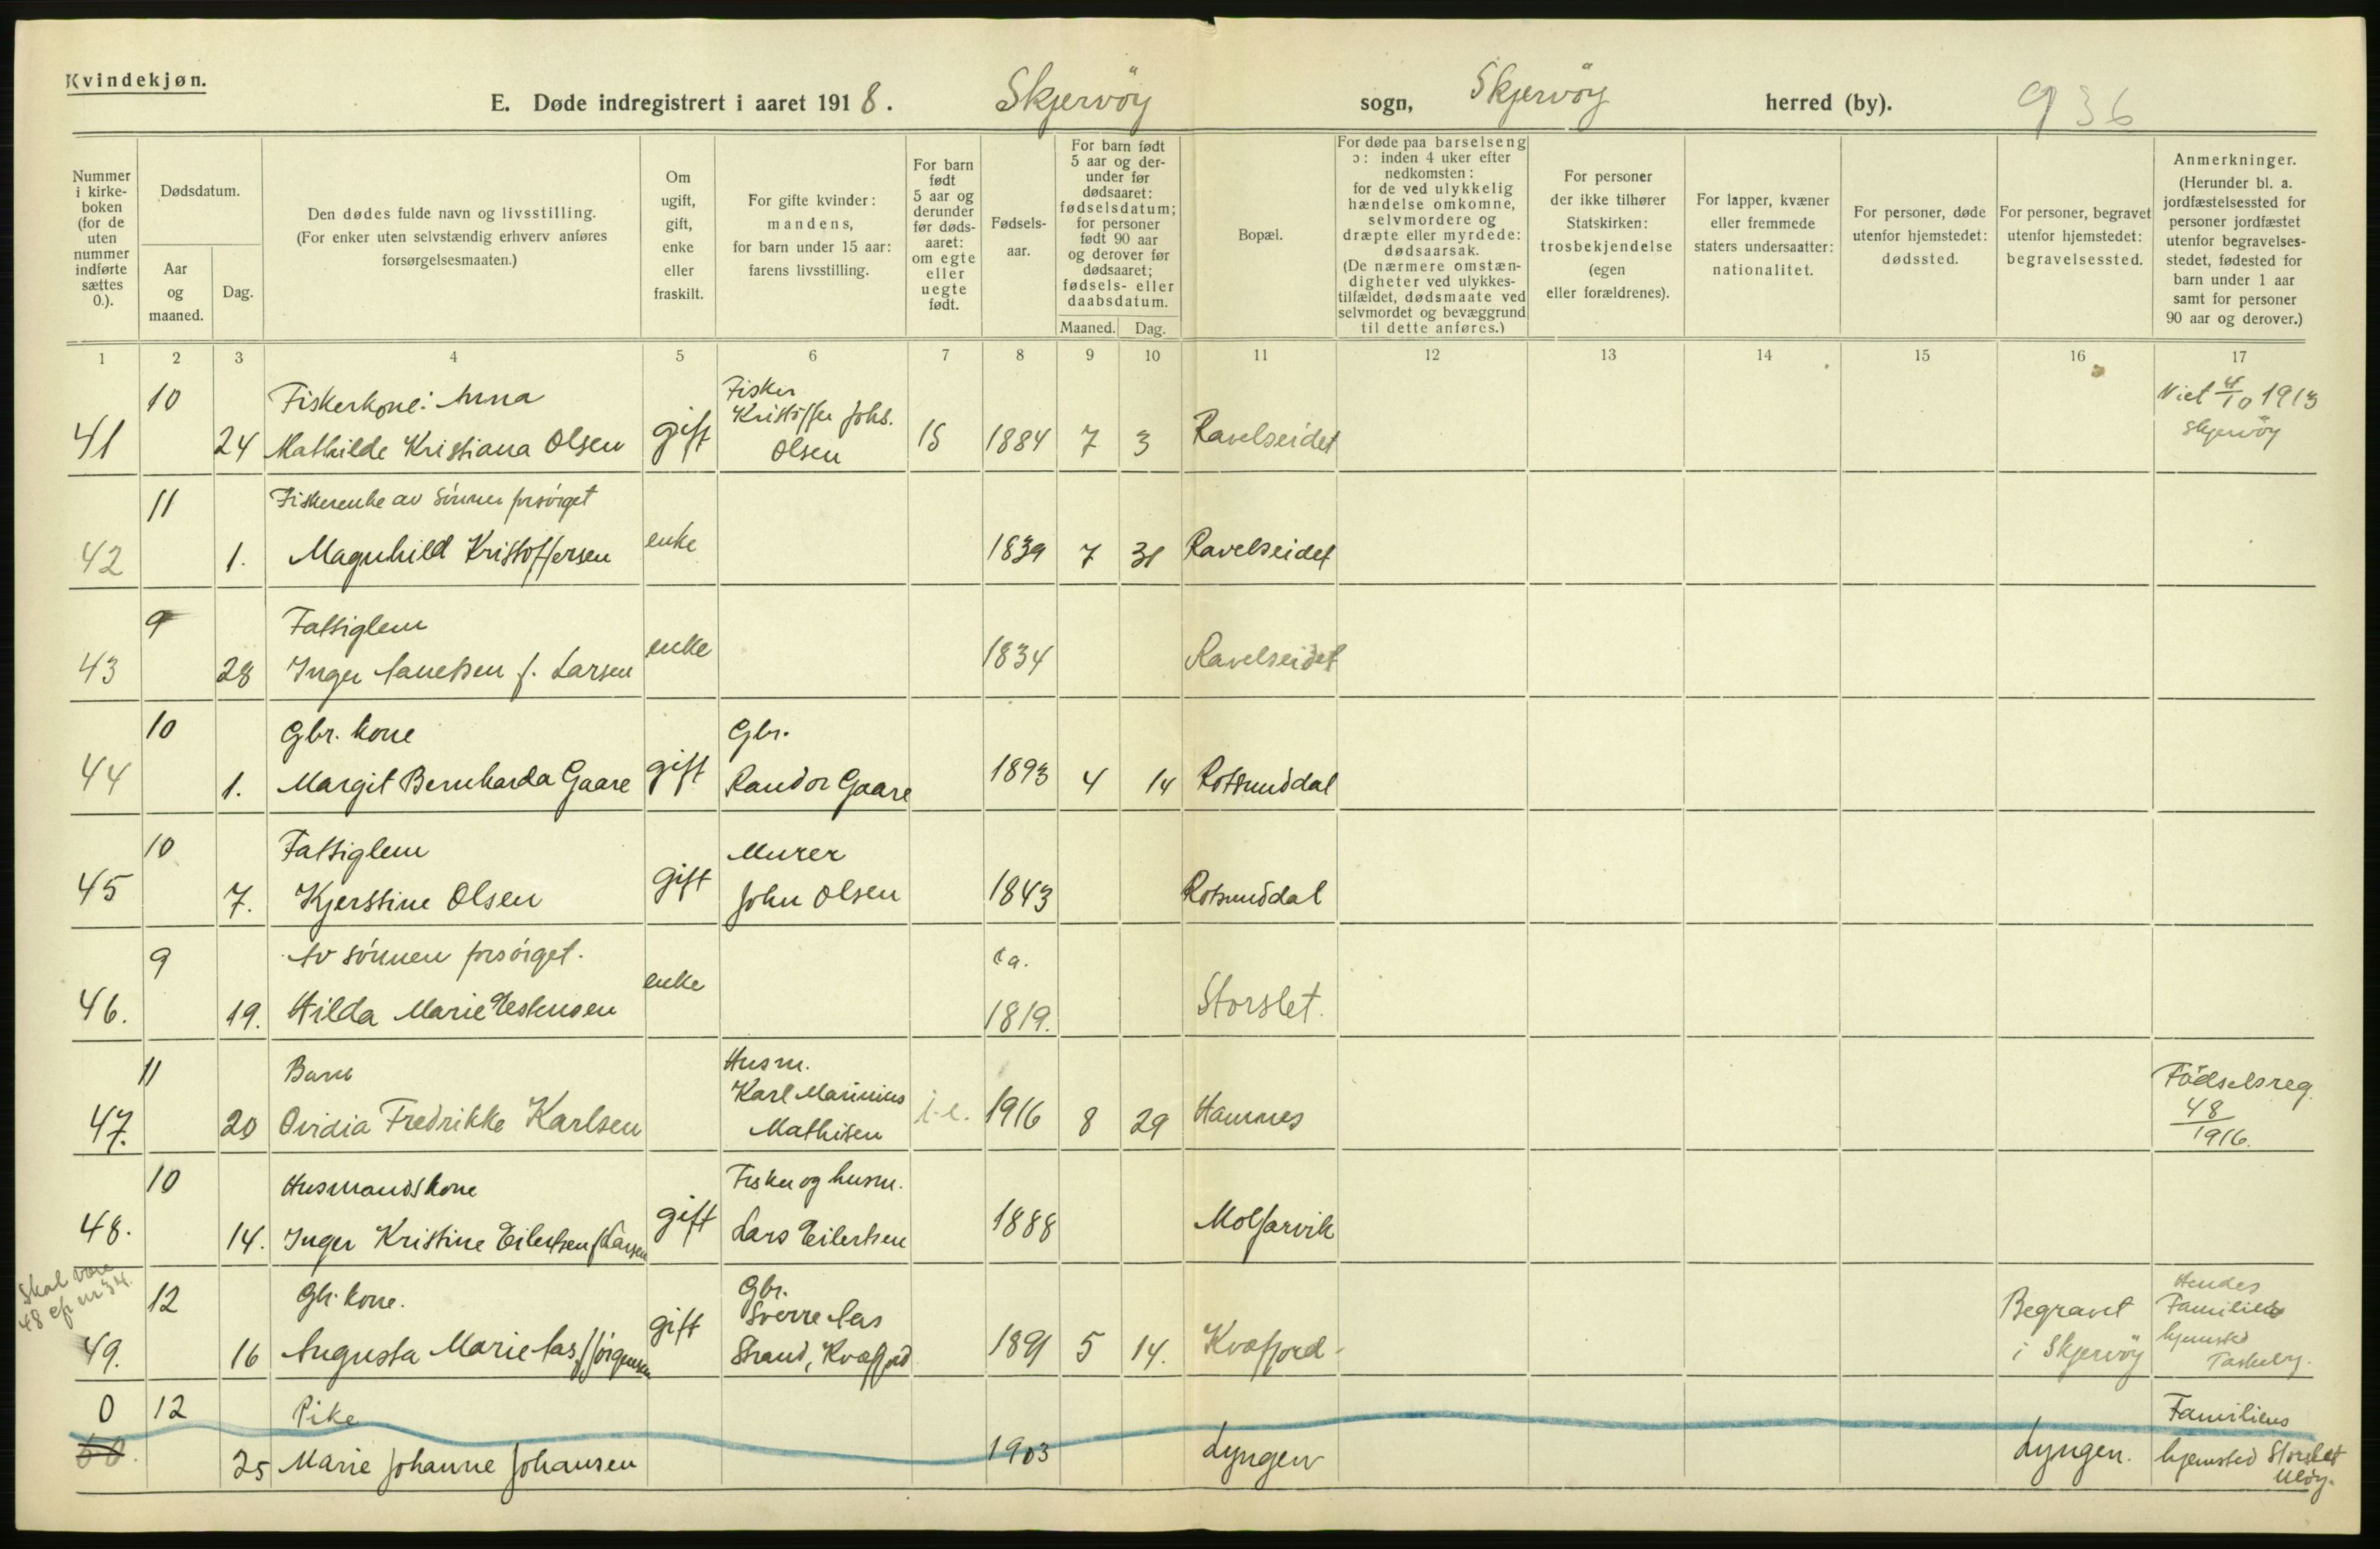 Kvindekjøn.
E. Døde indregistrert i aaret 1918. Skjervöy sogn, Skjervöy herred (by). 936
Nummer i kirke- boken (for de uten nummer indførte sættes 0.).
Dødsdatum.
Aar og maaned.
Dag.
Den dødes fulde navn og livsstilling.
(For enker uten selvstændig erhverv anføres forsørgelsesmaaten.)
Om ugift, gift, enke eller fraskilt.
For gifte kvinder: mandens, for barn under 15 aar: farens livsstilling.
For barn født 5 aar og derunder før døds- aaret: om egte eller uegte født.
Fødsels- aar.
For barn født 5 aar og der- under før dødsaaret: fødselsdatum; for personer født 90 aar og derover før dødsaaret; fødsels- eller daabsdatum.
Maaned. Dag.
Bopæl.
For døde paa barselseng ɔ: inden 4 uker efter nedkomsten: for de ved ulykkelig hændelse omkomne, selvmordere og dræpte eller myrdede: dødsaarsak. (De nærmere omstæn- digheter ved ulykkes- tilfældet, dødsmaate ved selvmordet og bevæggrund til dette anføres.)
For personer der ikke tilhører Statskirken: trosbekjendelse (egen eller forældrenes).
For lapper, kvæner eller fremmede staters undersaatter: nationalitet.
For personer, døde utenfor hjemstedet: dødssted.
For personer, begravet utenfor hjemstedet: begravelsessted.
Anmerkninger. (Herunder bl. a. jordfæstelsessted for personer jordfæstet utenfor begravelses- stedet, fødested for barn under 1 aar samt for personer 90 aar og derover.)
1 2 3 4 5 6 7 8 9 10 11 12 13 14 15 16 17
10 Fiskerkone: Anna Fisker Kristoffer Johs. Viet 4/10 1913
41 24 Mathilde Kristiana Olsen gift Olsen 15 1884 7 3 Ravelseidet Skjervöy
11 Fiskerenke av Sönner forsörget
42 1. Magnhild Kristoffersen enke 1839 7 31 Ravelseidet
9 Fattiglem
43 28 Inger f. Larsen enke 1834 Ravelseidet
10 Gbr. kone Gbr.
44 1. Margit Bernharda Gaare gift Randor Gaare 1893 4 14 Rotsunddal
10 Fattiglem Murer
45 7. Kjerstine Olsen gift John Olsen 1843 Rotsunddal
9 Av sönnen forsörget. ca.
46. 19. Hilda Marie enke 1819. Storslet.
11 Barn Husm. Karl Marinius Födselsreg.
47. 20 Ovidia Fredrikke Karlsen Mathisen i.e. 1916 8 29 Hamnes 48/1916.
10 Husmandskone Fisker og husm.
48. 14. Inger Kristine Eilertsen f Larsen gift Lars Eilertsen 1888
Skal være 48 cfr nr 34.
12 Gbr. kone. Gbr. Sverre Aas Begravet Hendes Familie
49. 16 Augusta Marie Aas, f Jörgensen gift Strand, Kvæfjord 1891 5 14. Kvæfjord i Skjervöy hjemsted
0 12 Pike Familiens
25 Marie Johanne Johansen 1903 Lyngen Lyngen. hjemsted Storslet
Ulöy.